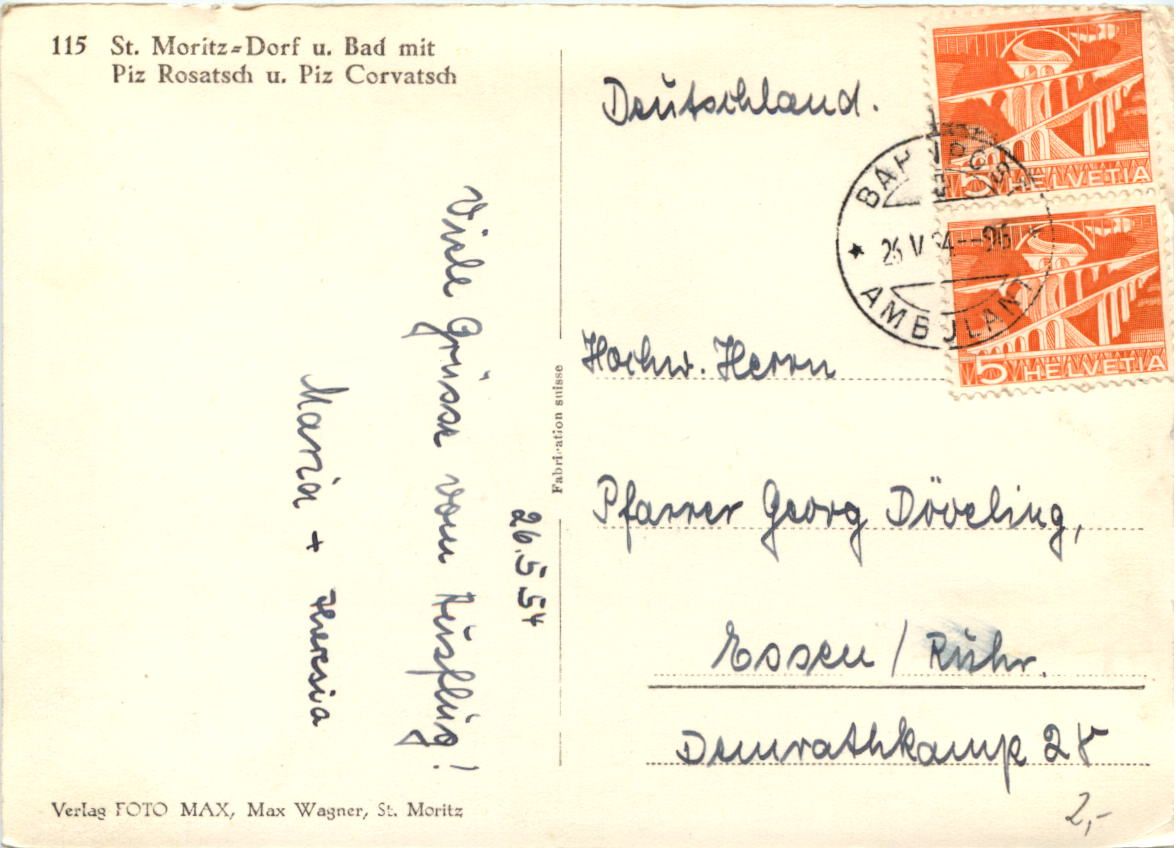 115 St. Moritz=Dorf u. Bad mit
Piz Rosatsch u. Piz Corvatsch
26.5.54
Viele Grüsse vom Ausflug!
Maria + Theresia
Verlag FOTO MAX, Max Wagner, St. Moritz
Fabrication suisse
Deutschland.
5 HELVETIA
5 HELVETIA
BAHNPOST
26 V 54--96
AMBULANT
Hochw. Herrn
Pfarrer Georg Döveling,
Essen / Ruhr.
Demrathkamp 28
2,-